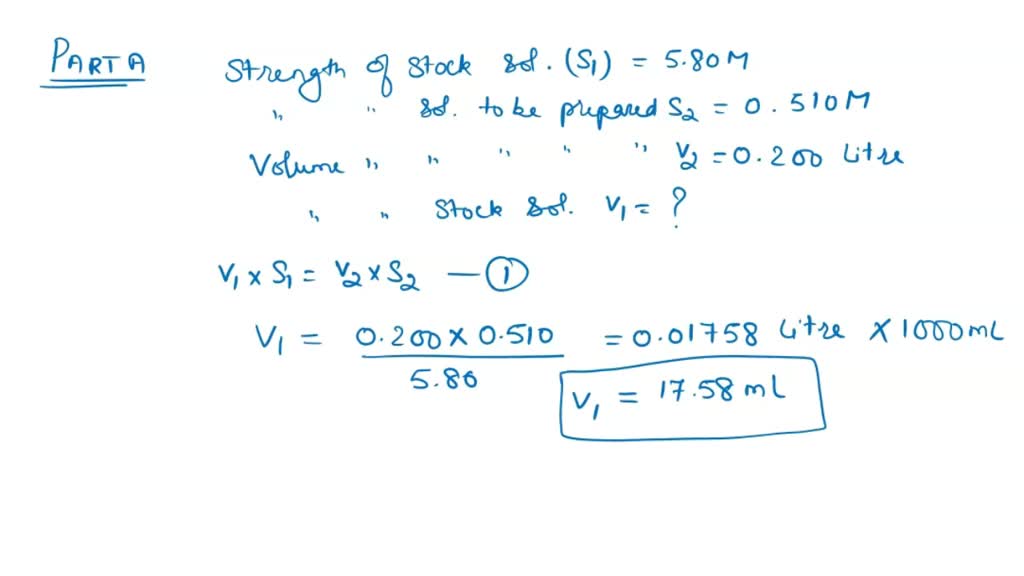 PART A
Strength of Stock Sol. (S₁) = 5.80 M
" " Sol. to be prepared S₂ = 0.510 M
Volume " " " " " V₂ = 0.200 Litre
" " Stock Sol. V₁ = ?
V₁ × S₁ = V₂ × S₂ — ①
V₁ = 0.200 × 0.510 = 0.01758 Litre × 1000 mL
5.80
V₁ = 17.58 mL